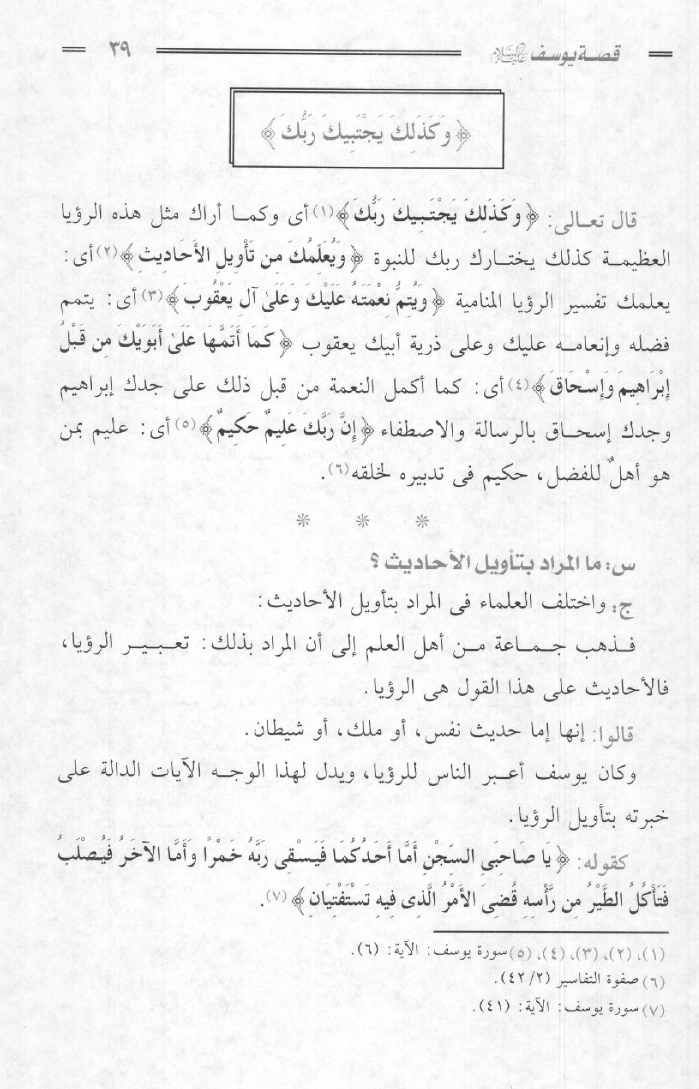 قصة يوسف عليه السلام ٣٩
﴿ وَكَذَلِكَ يَجْتَبِيكَ رَبُّكَ ﴾
قال تعالى: ﴿ وَكَذَلِكَ يَجْتَبِيكَ رَبُّكَ ﴾(١) أى وكما أراك مثل هذه الرؤيا
العظيمة كذلك يختارك ربك للنبوة ﴿ وَيُعَلِّمُكَ مِن تَأْوِيلِ الأَحَادِيثِ ﴾(٢) أى:
يعلمك تفسير الرؤيا المنامية ﴿ وَيُتِمُّ نِعْمَتَهُ عَلَيْكَ وَعَلَىٰ آلِ يَعْقُوبَ ﴾(٣) أى: يتمم
فضله وإنعامه عليك وعلى ذرية أبيك يعقوب ﴿ كَمَا أَتَمَّهَا عَلَىٰ أَبَوَيْكَ مِن قَبْلُ
إِبْرَاهِيمَ وَإِسْحَاقَ ﴾(٤) أى: كما أكمل النعمة من قبل ذلك على جدك إبراهيم
وجدك إسحاق بالرسالة والاصطفاء ﴿ إِنَّ رَبَّكَ عَلِيمٌ حَكِيمٌ ﴾(٥) أى: عليم بمن
هو أهلٌ للفضل، حكيم فى تدبيره لخلقه(٦).
* * *
س: ما المراد بتأويل الأحاديث ؟
ج: واختلف العلماء فى المراد بتأويل الأحاديث:
فذهب جماعة من أهل العلم إلى أن المراد بذلك: تعبير الرؤيا،
فالأحاديث على هذا القول هى الرؤيا.
قالوا: إنها إما حديث نفس، أو ملك، أو شيطان.
وكان يوسف أعبر الناس للرؤيا، ويدل لهذا الوجه الآيات الدالة على
خبرته بتأويل الرؤيا.
كقوله: ﴿ يَا صَاحِبَىِ السِّجْنِ أَمَّا أَحَدُكُمَا فَيَسْقِى رَبَّهُ خَمْرًا وَأَمَّا الآخَرُ فَيُصْلَبُ
فَتَأْكُلُ الطَّيْرُ مِن رَّأْسِهِ قُضِىَ الأَمْرُ الَّذِى فِيهِ تَسْتَفْتِيَانِ ﴾(٧).
(١)، (٢)، (٣)، (٤)، (٥) سورة يوسف: الآية: (٦).
(٦) صفوة التفاسير (٤٢/٢).
(٧) سورة يوسف: الآية: (٤١).